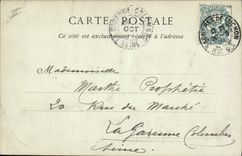 CARTE POSTALE
Ce côté est exclusivement réservé à l'adresse
OCT
Mademoiselle
Marthe Prophétie
20 Rue du Marché
La Garenne Colombes
Seine